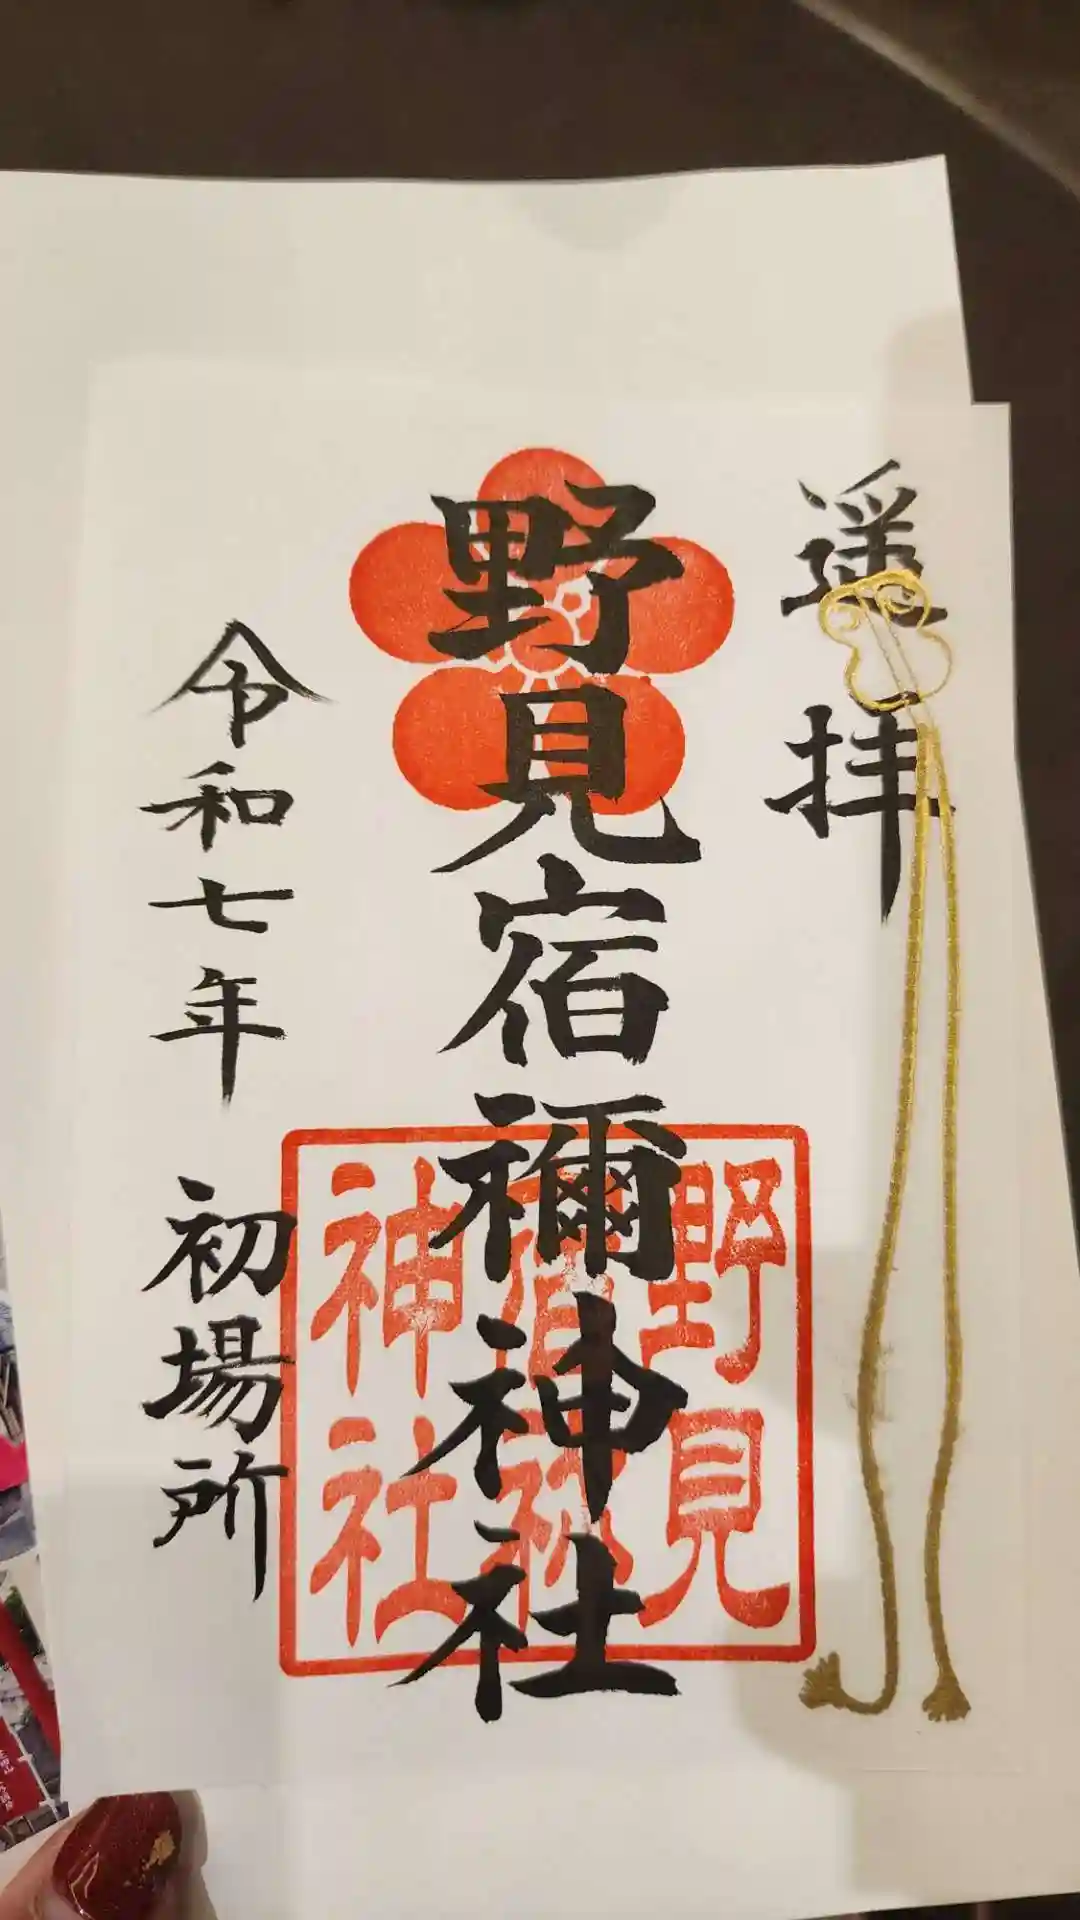 遥拝
野見宿禰神社
令和七年 初場所
野見
宿祢
神社